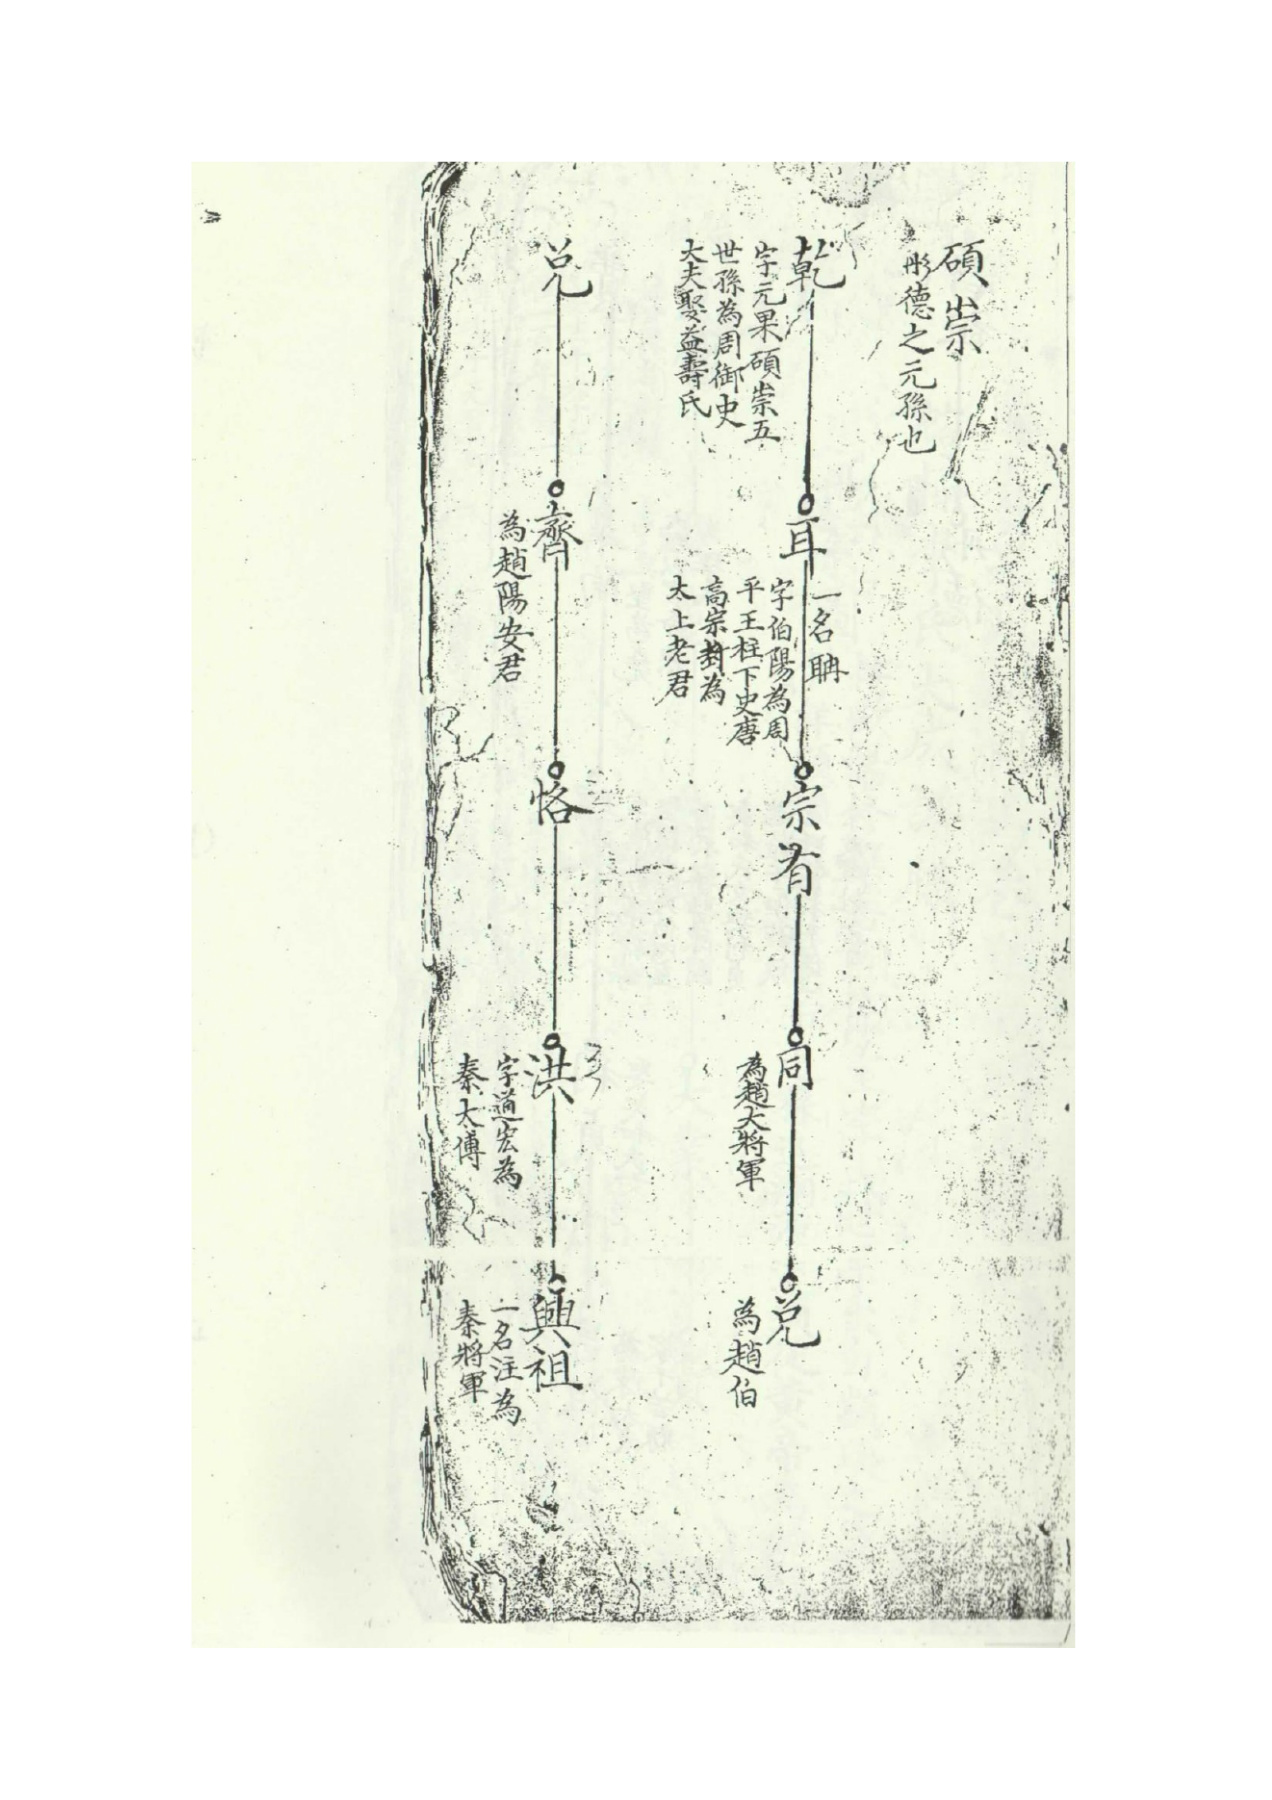 碩崇
彤德之元孫也
乾
字元果碩崇五
世孫為周御史
大夫娶益壽氏
耳
一名聃
字伯陽為周
平王柱下史唐
高宗封為
太上老君
宗有
同
為趙大將軍
兌
為趙伯
兌
齊
為趙陽安君
恪
洪
字道宏為
秦太傅
興祖
一名注為
秦將軍